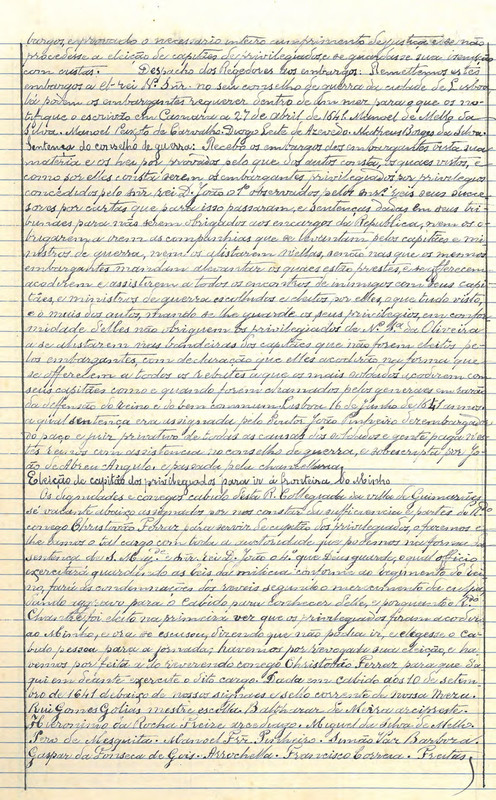 burgos, e provado o necessario inteiro cumprimento de justiça e se não
procedesse a eleição de capitães de privilegiados, e se guardasse sua isenção
com custas. Despacho dos Regedores aos embargos: Remettemos estes
embargos a el-rei N. Snr. no seu conselho de guerra da cidade de Lisboa
lá podem os embargantes requerer dentro de um mez para o que os no-
tifique o escrivão em Camara a 27 de abril de 1641. Manoel de Mello da
Silva. Manoel Peixoto de Carvalho. Diogo Leite de Azevedo. Matheus Borges da Silva.
Sentença do conselho de guerra: Recebo os embargos dos embargantes vista sua
materia e os hei por provados pelo que dos autos consta, os quaes vistos, e
como por elles consta serem os embargantes privilegiados por privilegios
concedidos pelo snr. rei D. João 1º observados, pelos snrs. reis seus succes-
sores por cartas que para isso passaram, e sentenças dadas em seus tri-
bunaes para não serem obrigados aos encargos da Republica, nem os o-
brigarem a irem as companhias que se levantam pelos capitães e mi-
nistros de guerra, nem os alistarem a ellas, senão nas que os mesmos
embargantes mandam alevantar os quaes estão prestes, e se offerecem
acodirem e assistirem a todos os encontros de inimigos com seus capi-
tães, e ministros de guerra escolhidos e eleitos por elles, o que tudo visto,
e o mais dos autos, mando se lhe guarde os seus privilegios, em confor-
midade d'elles não obriguem os privilegiados de N. Snra. da Oliveira
a se alistarem nas bandeiras dos capitães que não forem eleitos pe-
los embargantes, com declaração que elles acodirão na forma que
se offerecem a todos os rebates a que os mais alistados acodirem com
seus capitães como e quando forem chamados pelos generaes em razão
da defensão do reino e do bem commum. Lisboa 16 de junho de 1641 annos
a qual sentença era assignada pelo doutor João Pinheiro desembargador
do paço e juiz privativo de todas as causas dos soldados e gente paga nes-
tes reinos com assistencia no conselho de guerra, e sobescripta por Jo-
ão de Abreu Angulo, e passada pela chancellaria.
Eleição de capitão dos privilegiados para ir á fronteira do Minho
Os dignidades e conegos cabido d'esta R. Collegiada da villa de Guimarães,
sé vacante abaixo assignados por nos constar da sufficiencia e partes do Rdo.
conego Christovão Ferraz para servir de capitão dos privilegiados, o fazemos e
lhe damos o tal cargo com toda a auctoridade que podemos na forma da
sentença de S. Mage. o snr. rei D. João o 4º que Deus guarde, o qual officio
exercitará guardando as leis da milicia conforme ao regimento do rei-
no, fará as condemnações dos réveis segundo o merecimento da culpa
dando aggravo para o Cabido para conhecer d'elle, e porquanto o Rdo.
Chantre foi eleito na primeira vez que os privilegiados foram acodir
ao Minho, e ora se escusou, dizendo que não podia ir, e elegesse o Ca-
bido, pessoa para a jornada; havemos por revogada sua eleição, e ha-
vemos por feita a do reverendo conego Christovão Ferraz para que d'a-
qui em deante exercite o dito cargo. Dada em cabido aos 10 de setem-
bro de 1641 debaixo de nossos signaes e sello corrente da nossa meza.
Rui Gomes Golias mestre escolla. Balthazar de Meira arcipreste.
Hieronimo da Rocha Freire arcediago. Miguel da Silva de Mello.
Pero de Mesquita. Manoel Frz. Pinheiro. Simão Vaz Barboza.
Gaspar da Fonseca de Gois. Arrochella. Francisco Correia. Freitas